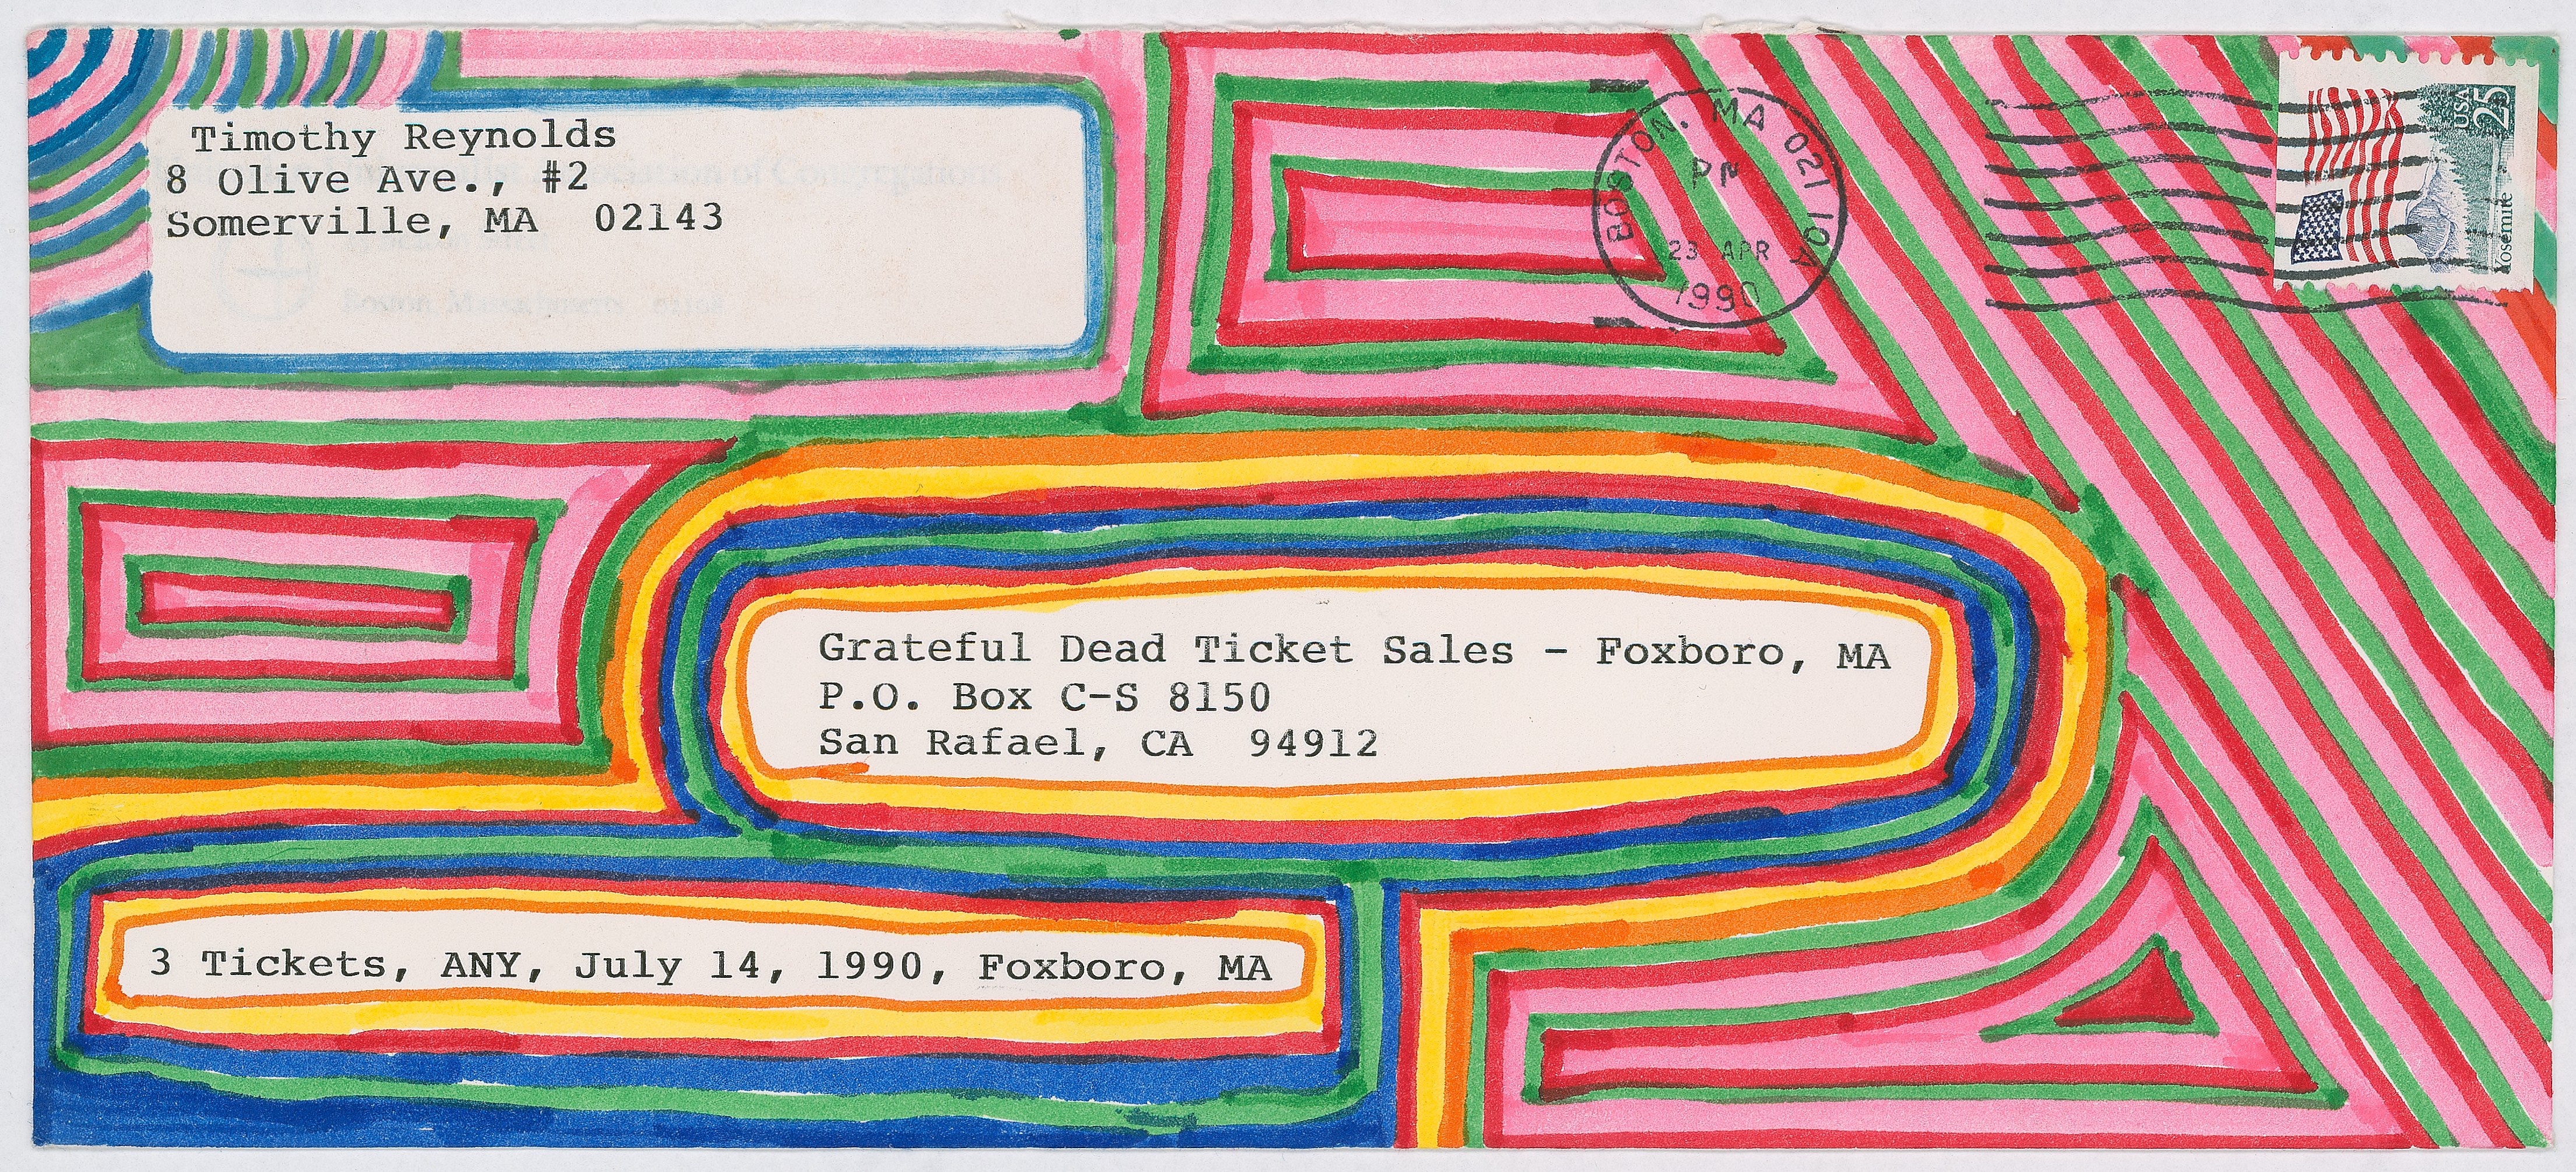 Timothy Reynolds
8 Olive Ave., #2
Somerville, MA 02143
BOSTON, MA 021 10A
PM
23 APR
1990
USA 25
Yosemite
Grateful Dead Ticket Sales - Foxboro, MA
P.O. Box C-S 8150
San Rafael, CA 94912
3 Tickets, ANY, July 14, 1990, Foxboro, MA